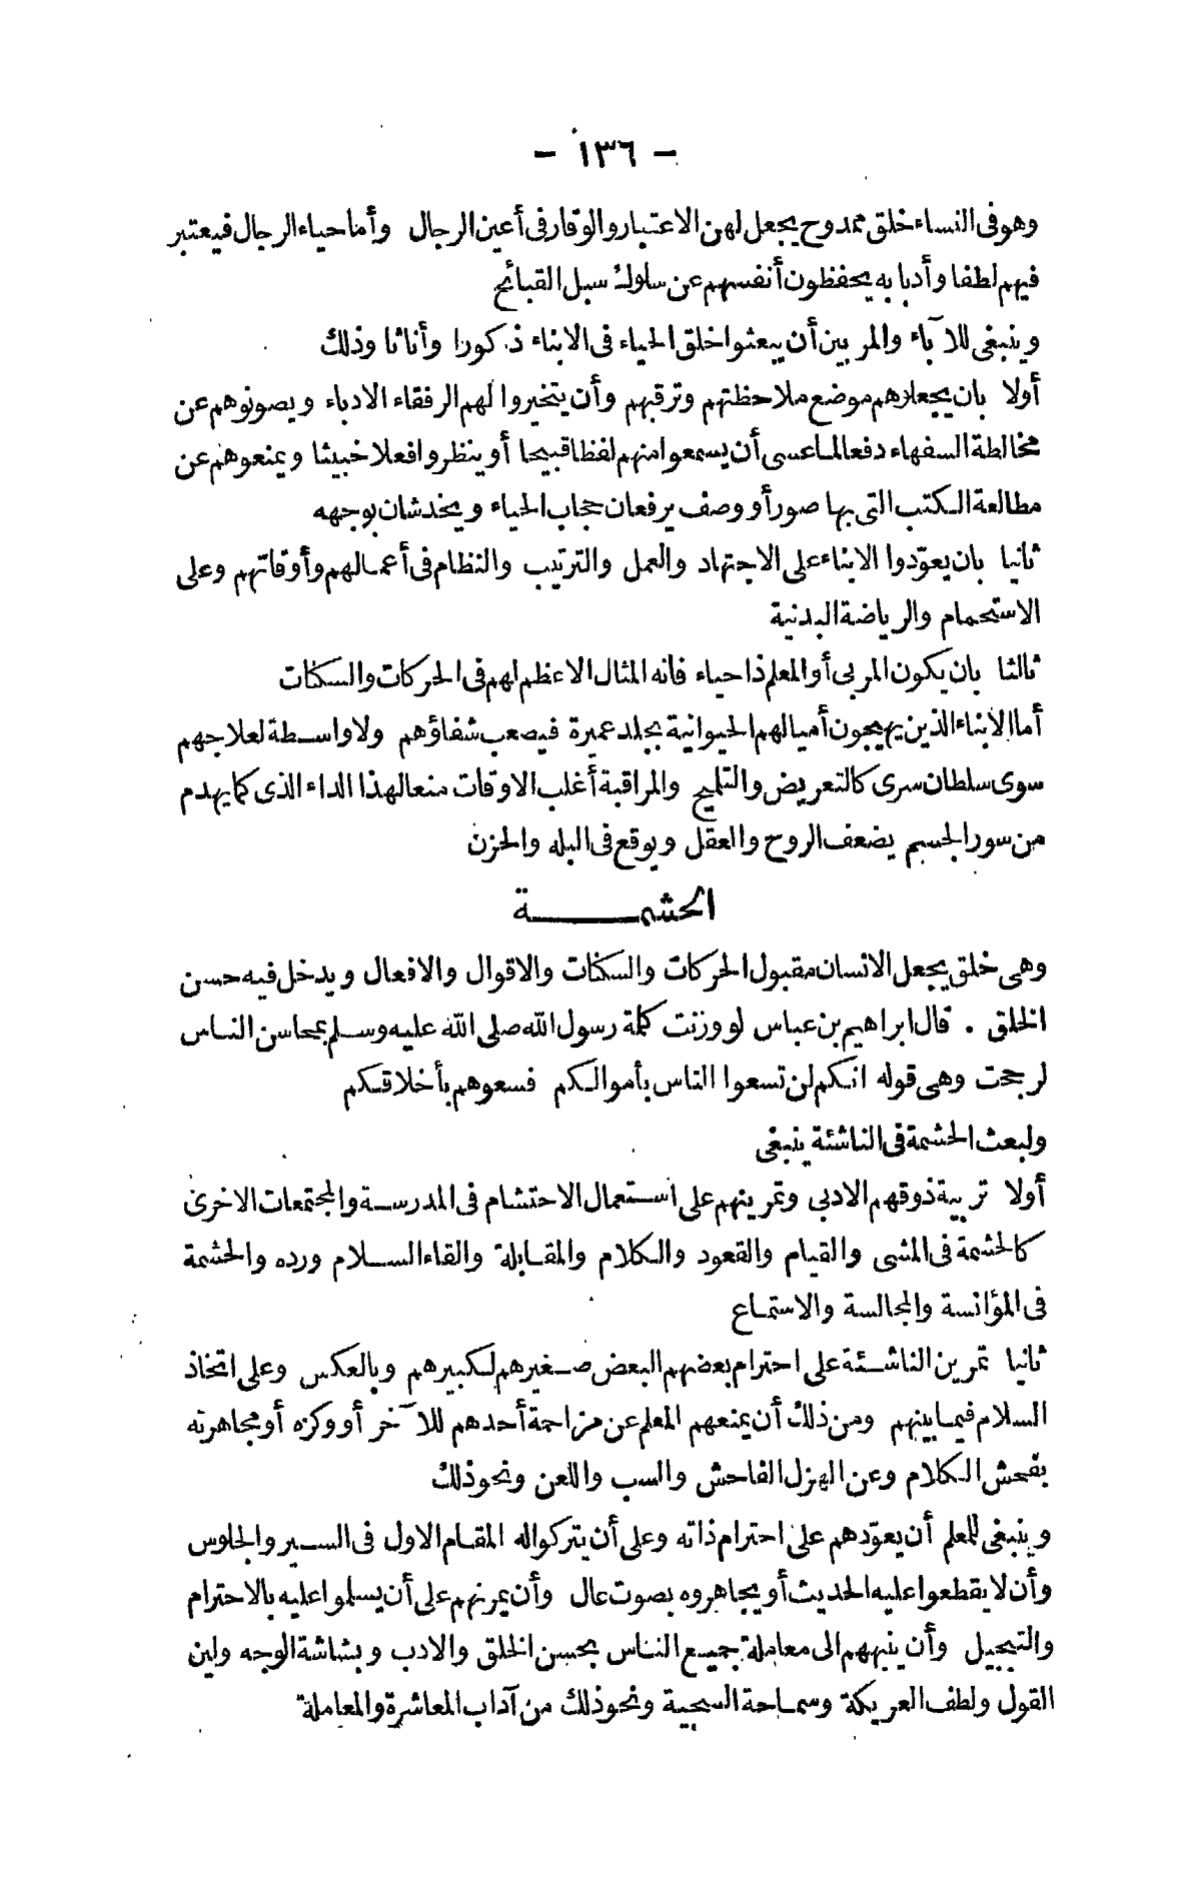 - ١٣٦ -
وهو فى النساء خلق ممدوح يجعل لهن الاعتبار والوقار فى أعين الرجال وأما حياء الرجال فيعتبر
فيهم لطفا وأدبا به يحفظون أنفسهم عن سلوك سبل القبائح
وينبغى للآباء والمربين أن يبعثوا خلق الحياء فى الابناء ذكورا وأناثا وذلك
أولا بان يجعلوهم موضع ملاحظتهم وترقبهم وأن يتخيروا لهم الرفقاء الادباء ويصونوهم عن
مخالطة السفهاء دفعا لما عسى أن يسمعوا منهم لفظا قبيحا أو ينظروا فعلا خبيثا ويمنعوهم عن
مطالعة الكتب التى بها صور أو وصف يرفعان حجاب الحياء ويخدشان بوجهه
ثانيا بان يعوّدوا الابناء على الاجتهاد والعمل والترتيب والنظام فى أعمالهم وأوقاتهم وعلى
الاستحمام والرياضة البدنية
ثالثا بان يكون المربى أو المعلم ذا حياء فانه المثال الاعظم لهم فى الحركات والسكنات
أما الابناء الذين يهيجون أميالهم الحيوانية بجلد عميرة فيصعب شفاؤهم ولا واسطة لعلاجهم
سوى سلطان سرى كالتعريض والتلميح والمراقبة أغلب الاوقات منعا لهذا الداء الذى كما يهدم
من سور الجسم يضعف الروح والعقل ويوقع فى البله والحزن
الحشمة
وهى خلق يجعل الانسان مقبول الحركات والسكنات والاقوال والافعال ويدخل فيه حسن
الخلق . قال ابراهيم بن عباس لو وزنت كلمة رسول الله صلى الله عليه وسلم بمحاسن الناس
لرجحت وهى قوله انكم لن تسعوا الناس بأموالكم فسعوهم بأخلاقكم
ولبعث الحشمة فى الناشئة ينبغى
أولا تربية ذوقهم الادبى وتمرينهم على استعمال الاحتشام فى المدرسة والمجتمعات الاخرى
كالحشمة فى المشى والقيام والقعود والكلام والمقابلة والقاء السلام ورده والحشمة
فى المؤانسة والمجالسة والاستماع
ثانيا تمرين الناشئة على احترام بعضهم البعض صغيرهم لكبيرهم وبالعكس وعلى اتخاذ
السلام فيما بينهم ومن ذلك أن يمنعهم المعلم عن مزاحمة أحدهم للآخر أو وكزه أو مجاهرته
بفحش الكلام وعن الهزل الفاحش والسب واللعن ونحو ذلك
وينبغى للمعلم أن يعوّدهم على احترام ذاته وعلى أن يتركوا له المقام الاول فى السير والجلوس
وأن لا يقطعوا عليه الحديث أو يجاهروه بصوت عال وأن يمرنهم على أن يسلموا عليه بالاحترام
والتبجيل وأن ينبههم الى معاملة جميع الناس بحسن الخلق والادب وبشاشة الوجه ولين
القول ولطف العريكة وسماحة السجية ونحو ذلك من آداب المعاشرة والمعاملة